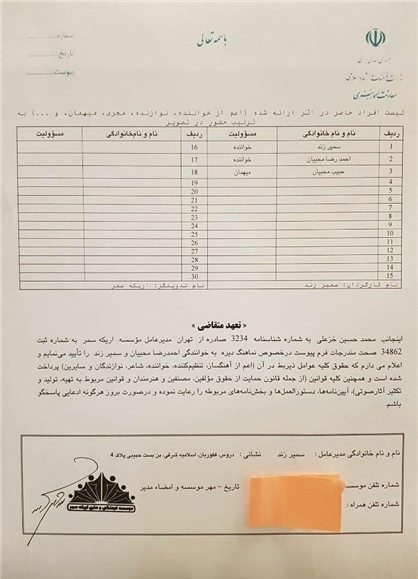 باسمه تعالی
شماره
تاریخ
پیوست
جمهوری اسلامی ایران
معاونت امور هنری
لیست افراد حاضر در اثر ارائه شده (اعم از خواننده، نوازنده، مجری، میهمان، و ...) به
ترتیب حضور در تصویر
ردیف نام و نام خانوادگی مسؤولیت ردیف نام و نام‌خانوادگی مسؤولیت
1 سمیر زند خواننده 16
2 احمد رضا محبیان خواننده 17
3 حبیب محبیان میهمان 18
4 19
5 20
6 21
7 22
8 23
9 24
10 25
11 26
12 27
13 28
14 29
15 30
نام کارگردان: سمیر زند نام تدوینگر: اریکه سمر
« تعهد متقاضی »
اینجانب محمد حسین خزعلی به شماره شناسنامه 3234 صادره از تهران مدیرعامل مؤسسه اریکه سمر به شماره ثبت
34862 صحت مندرجات فرم پیوست درخصوص نماهنگ دیره به خوانندگی احمدرضا محبیان و سمیر زند را تأیید می‌نمایم و
اعلام می دارم که حقوق کلیه عوامل ذیربط در آن (اعم از آهنگساز، تنظیم‌کننده، خواننده، شاعر، نوازندگان و سایرین) پرداخت
شده است و همچنین کلیه قوانین (از جمله قانون حمایت از حقوق مؤلفین، مصنفین و هنرمندان و قوانین مربوط به تهیه، تولید و
تکثیر آثارصوتی)، آیین‌نامه‌ها، دستورالعمل‌ها و بخش‌نامه‌های مربوطه را رعایت نموده و درصورت بروز هرگونه ادعایی پاسخگو
باشم.
نام و نام خانوادگی مدیرعامل : سمیر زند نشانی : دروس، فکوریان، اسلامیه شرقی، بن بست حبیبی پلاک 4
شماره تلفن موسسه
شماره تلفن همراه :
تاریخ – مهر موسسه و امضاء مدیر